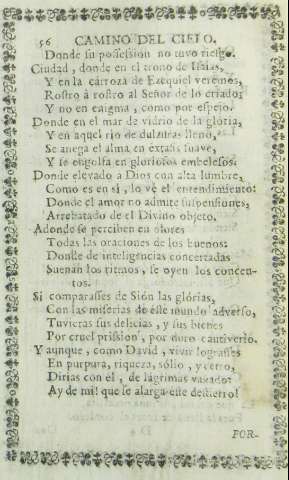 56 CAMINO DEL CIELO.
Donde su possession no tuvo riesgo.
Ciudad, donde en el trono de Isaìas,
Y en la carroza de Ezequiel veremos,
Rostro à rostro al Señor de lo criado;
Y no en enigma, como por espejo.
Donde en el mar de vidrio de la gloria,
Y en aquel rio de dulzuras lleno,
Se anega el alma en extasis suave,
Y se engolfa en gloriosos embelesos:
Donde elevado à Dios con alta lumbre,
Como es en sì, lo vè el entendimiento:
Donde el amor no admite suspensiones,
Arrebatado de el Divino objeto.
Adonde se perciben en olores
Todas las oraciones de los buenos:
Donde de inteligencias concertadas
Suenan los ritmos, se oyen los concen-
tos.
Si comparasses de Siòn las glorias,
Con las miserias de este mundo adverso,
Tuvieras sus delicias, y sus bienes
Por cruel prission, por duro cautiverio.
Y aunque, como David, vivir lograsses
En purpura, riqueza, sòlio, y cetro,
Dirias con èl, de lagrimas vañado:
Ay de mì! que se alarga este destierro!
FOR-